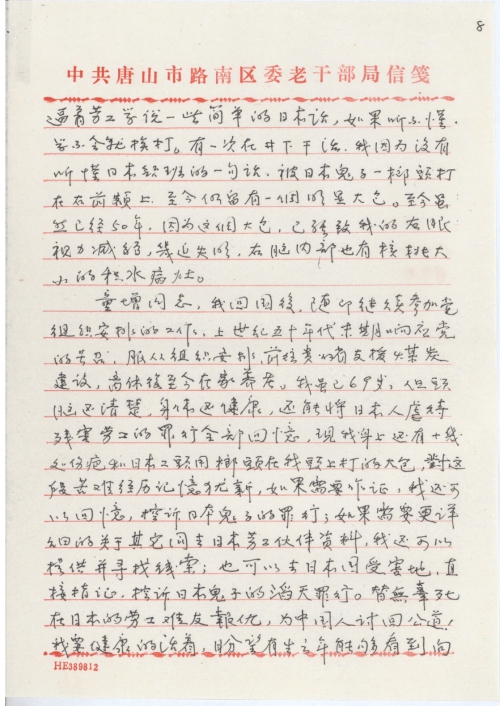 8
中共唐山市路南区委老干部局信笺
逼着劳工学说一些简单的日本话，如果听不懂，
学不会就挨打。有一次在井下干活，我因为没有
听懂日本领班的一句话，被日本鬼子一榔头打
在右前额上，至今仍留有一個明显大包。至今虽
然已经50年，因为这個大包，已导致我的右眼
视力减弱，幾近失明，右脑内部也有核桃大
小的积水病灶。
童增同志，我回国後，随即继续参加党
组织安排的工作，上世纪五十年代末期响应党
的号召，服从组织安排，前往贵州省支援煤炭
建设，离休後至今在家养老。我虽已69岁，但头
脑还清楚，身体还健康，还能将日本人虐待
残害劳工的罪行全部回忆，现我身上还有十幾
处伤疤和日本工头用榔头在我头上打的大包，對这
段苦难经历记憶犹新，如果需要作证，我还可
以回憶，控訴日本鬼子的罪行；如果需要更详
细的关于其它同去日本劳工伙伴资料，我还可以
提供并寻找线索；也可以去日本国受害地，直
接指证，控訴日本鬼子的滔天罪行。替無辜死
在日本的劳工难友報仇，为中国人讨回公道！
我要健康的活着，盼望有生之年能够看到向
HE389812